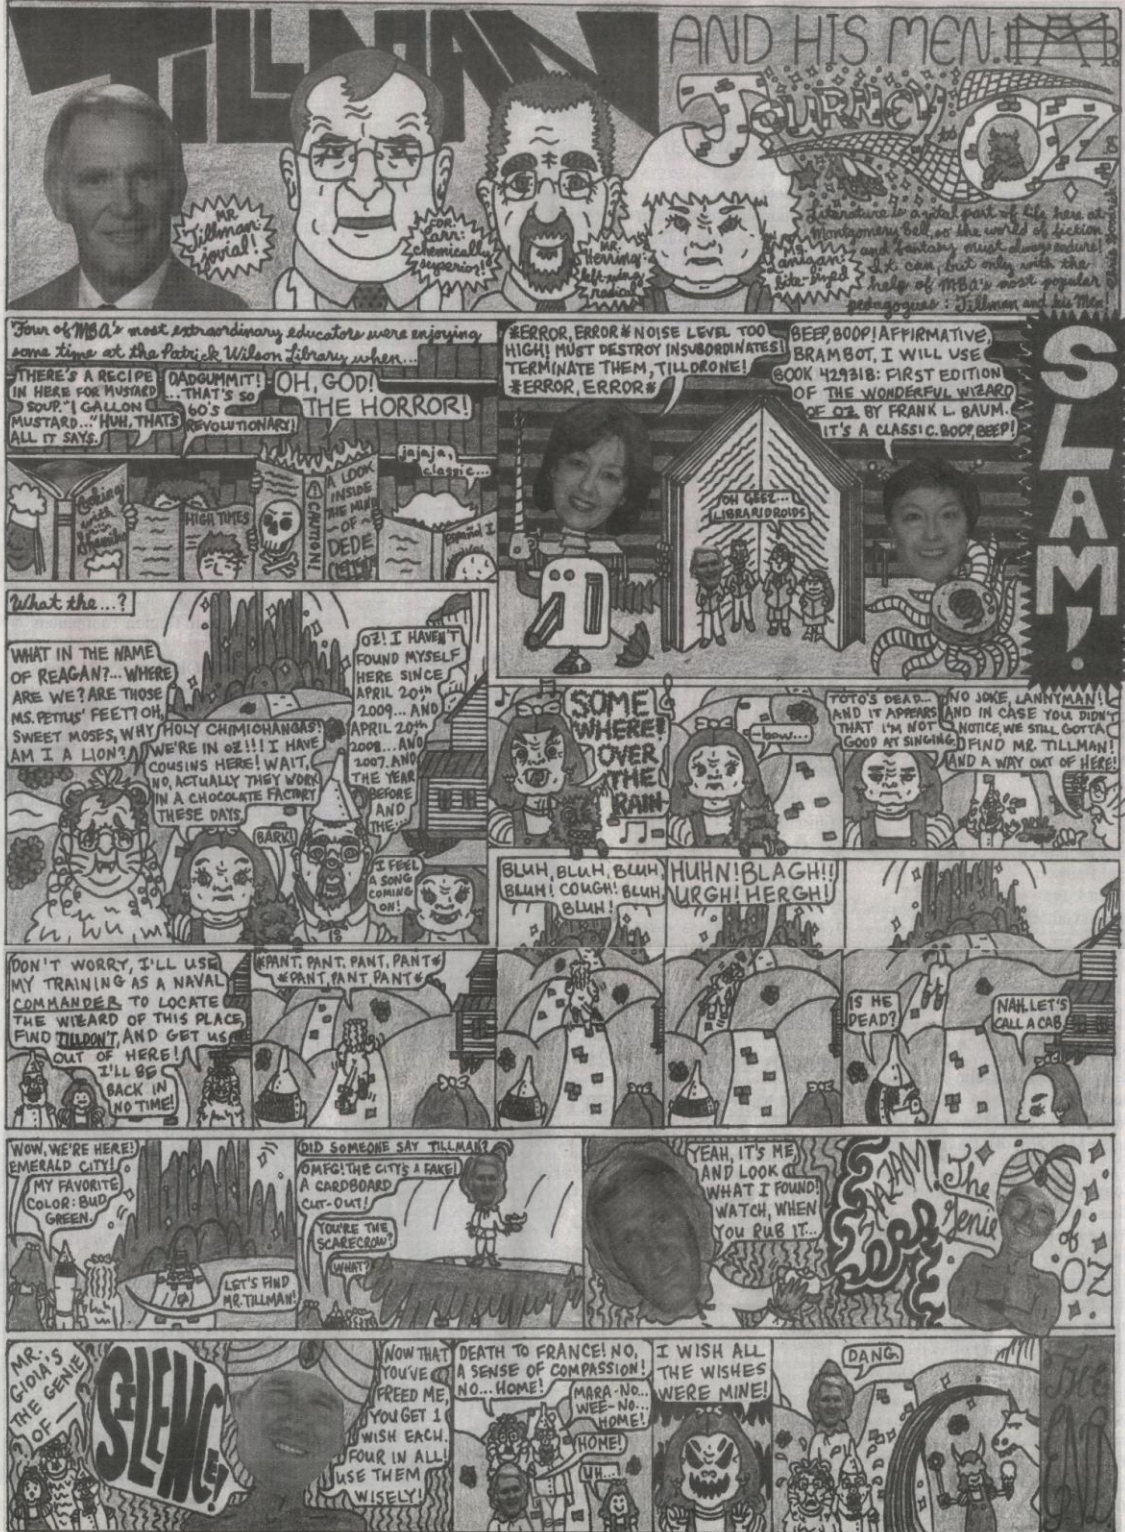 TILLMAN
AND HIS MEN:
JOURNEY
to
OZ
MR.
Tillman:
jovial!
DR.
Carr:
chemically
superior!
MR.
Herring:
left-wing
radical
Lanigan:
bite-sized
Literature is a vital part of life here at
Montgomery Bell, so the world of fiction
and fantasy must always endure!
It can, but only with the
help of MBA's most popular
pedagogues: Tillman and his Men!
Four of MBA's most extraordinary educators were enjoying
some time at the Patrick Wilson Library when...
THERE'S A RECIPE
IN HERE FOR MUSTARD
SOUP. "1 GALLON
MUSTARD..." HUH, THAT'S
ALL IT SAYS.
DADGUMMIT!
...THAT'S SO
60'S
REVOLUTIONARY!
OH, GOD!
THE HORROR!
jajaja,
classic...
Cooking
with
HIGH TIMES
CAUTION!
A LOOK
INSIDE
THE MIND
OF
DEDE
Español I
*ERROR, ERROR* NOISE LEVEL TOO
HIGH! MUST DESTROY INSUBORDINATES!
TERMINATE THEM, TILLDRONE!
*ERROR, ERROR*
BEEP, BOOP! AFFIRMATIVE,
BRAMBOT, I WILL USE
BOOK 429318: FIRST EDITION
OF THE WONDERFUL WIZARD
OF OZ BY FRANK L. BAUM.
IT'S A CLASSIC. BOOP, BEEP!
OH GEEZ...
LIBRARIDROIDS
SLAM!
What the...?
WHAT IN THE NAME
OF REAGAN?... WHERE
ARE WE? ARE THOSE
MS. PETTUS' FEET? OH,
SWEET MOSES, WHY
AM I A LION?
HOLY CHIMICHANGAS!
WE'RE IN OZ!!! I HAVE
COUSINS HERE! WAIT,
NO, ACTUALLY THEY WORK
IN A CHOCOLATE FACTORY
THESE DAYS.
BARK!
OZ! I HAVEN'T
FOUND MYSELF
HERE SINCE
APRIL 20th
2009... AND
APRIL 20th
2008... AND
2007. AND
THE YEAR
BEFORE
AND
THE...
I FEEL
A SONG
COMING
ON!
SOME
WHERE!
OVER
THE
RAIN-
-bow...
TOTO'S DEAD...
AND IT APPEARS
THAT I'M NOT
GOOD AT SINGING.
NO JOKE, LANNYMAN!
AND IN CASE YOU DIDN'T
NOTICE, WE STILL GOTTA
FIND MR. TILLMAN!
AND A WAY OUT OF HERE!
DON'T WORRY, I'LL USE
MY TRAINING AS A NAVAL
COMMANDER TO LOCATE
THE WIZARD OF THIS PLACE,
FIND TILLDON'T, AND GET US
OUT OF HERE!
I'LL BE
BACK IN
NO TIME!
*PANT, PANT, PANT, PANT*
*PANT, PANT PANT*
BLUH, BLUH, BLUH,
BLUH! COUGH! BLUH,
BLUH!
HUHN! BLAGH!!
URGH! HERGH!
IS HE
DEAD?
NAH. LET'S
CALL A CAB.
WOW, WE'RE HERE!
EMERALD CITY!
MY FAVORITE
COLOR: BUD
GREEN.
LET'S FIND
MR. TILLMAN!
DID SOMEONE SAY TILLMAN?
OMFG! THE CITY'S A FAKE!
A CARDBOARD
CUT-OUT!
YOU'RE THE
SCARECROW?
WHAT?
YEAH, IT'S ME,
AND LOOK
WHAT I FOUND!
WATCH, WHEN
YOU RUB IT...
The
Genie
of
OZ.
MR.
GIOIA'S
THE GENIE
OF—
SILENCE!
NOW THAT
YOU'VE
FREED ME,
YOU GET 1
WISH EACH.
FOUR IN ALL!
USE THEM
WISELY!
DEATH TO FRANCE! NO,
A SENSE OF COMPASSION!
NO... HOME!
MARA-NO...
WEE-NO...
HOME!
HOME!
UH...
I WISH ALL
THE WISHES
WERE MINE!
DANG.
THE
END